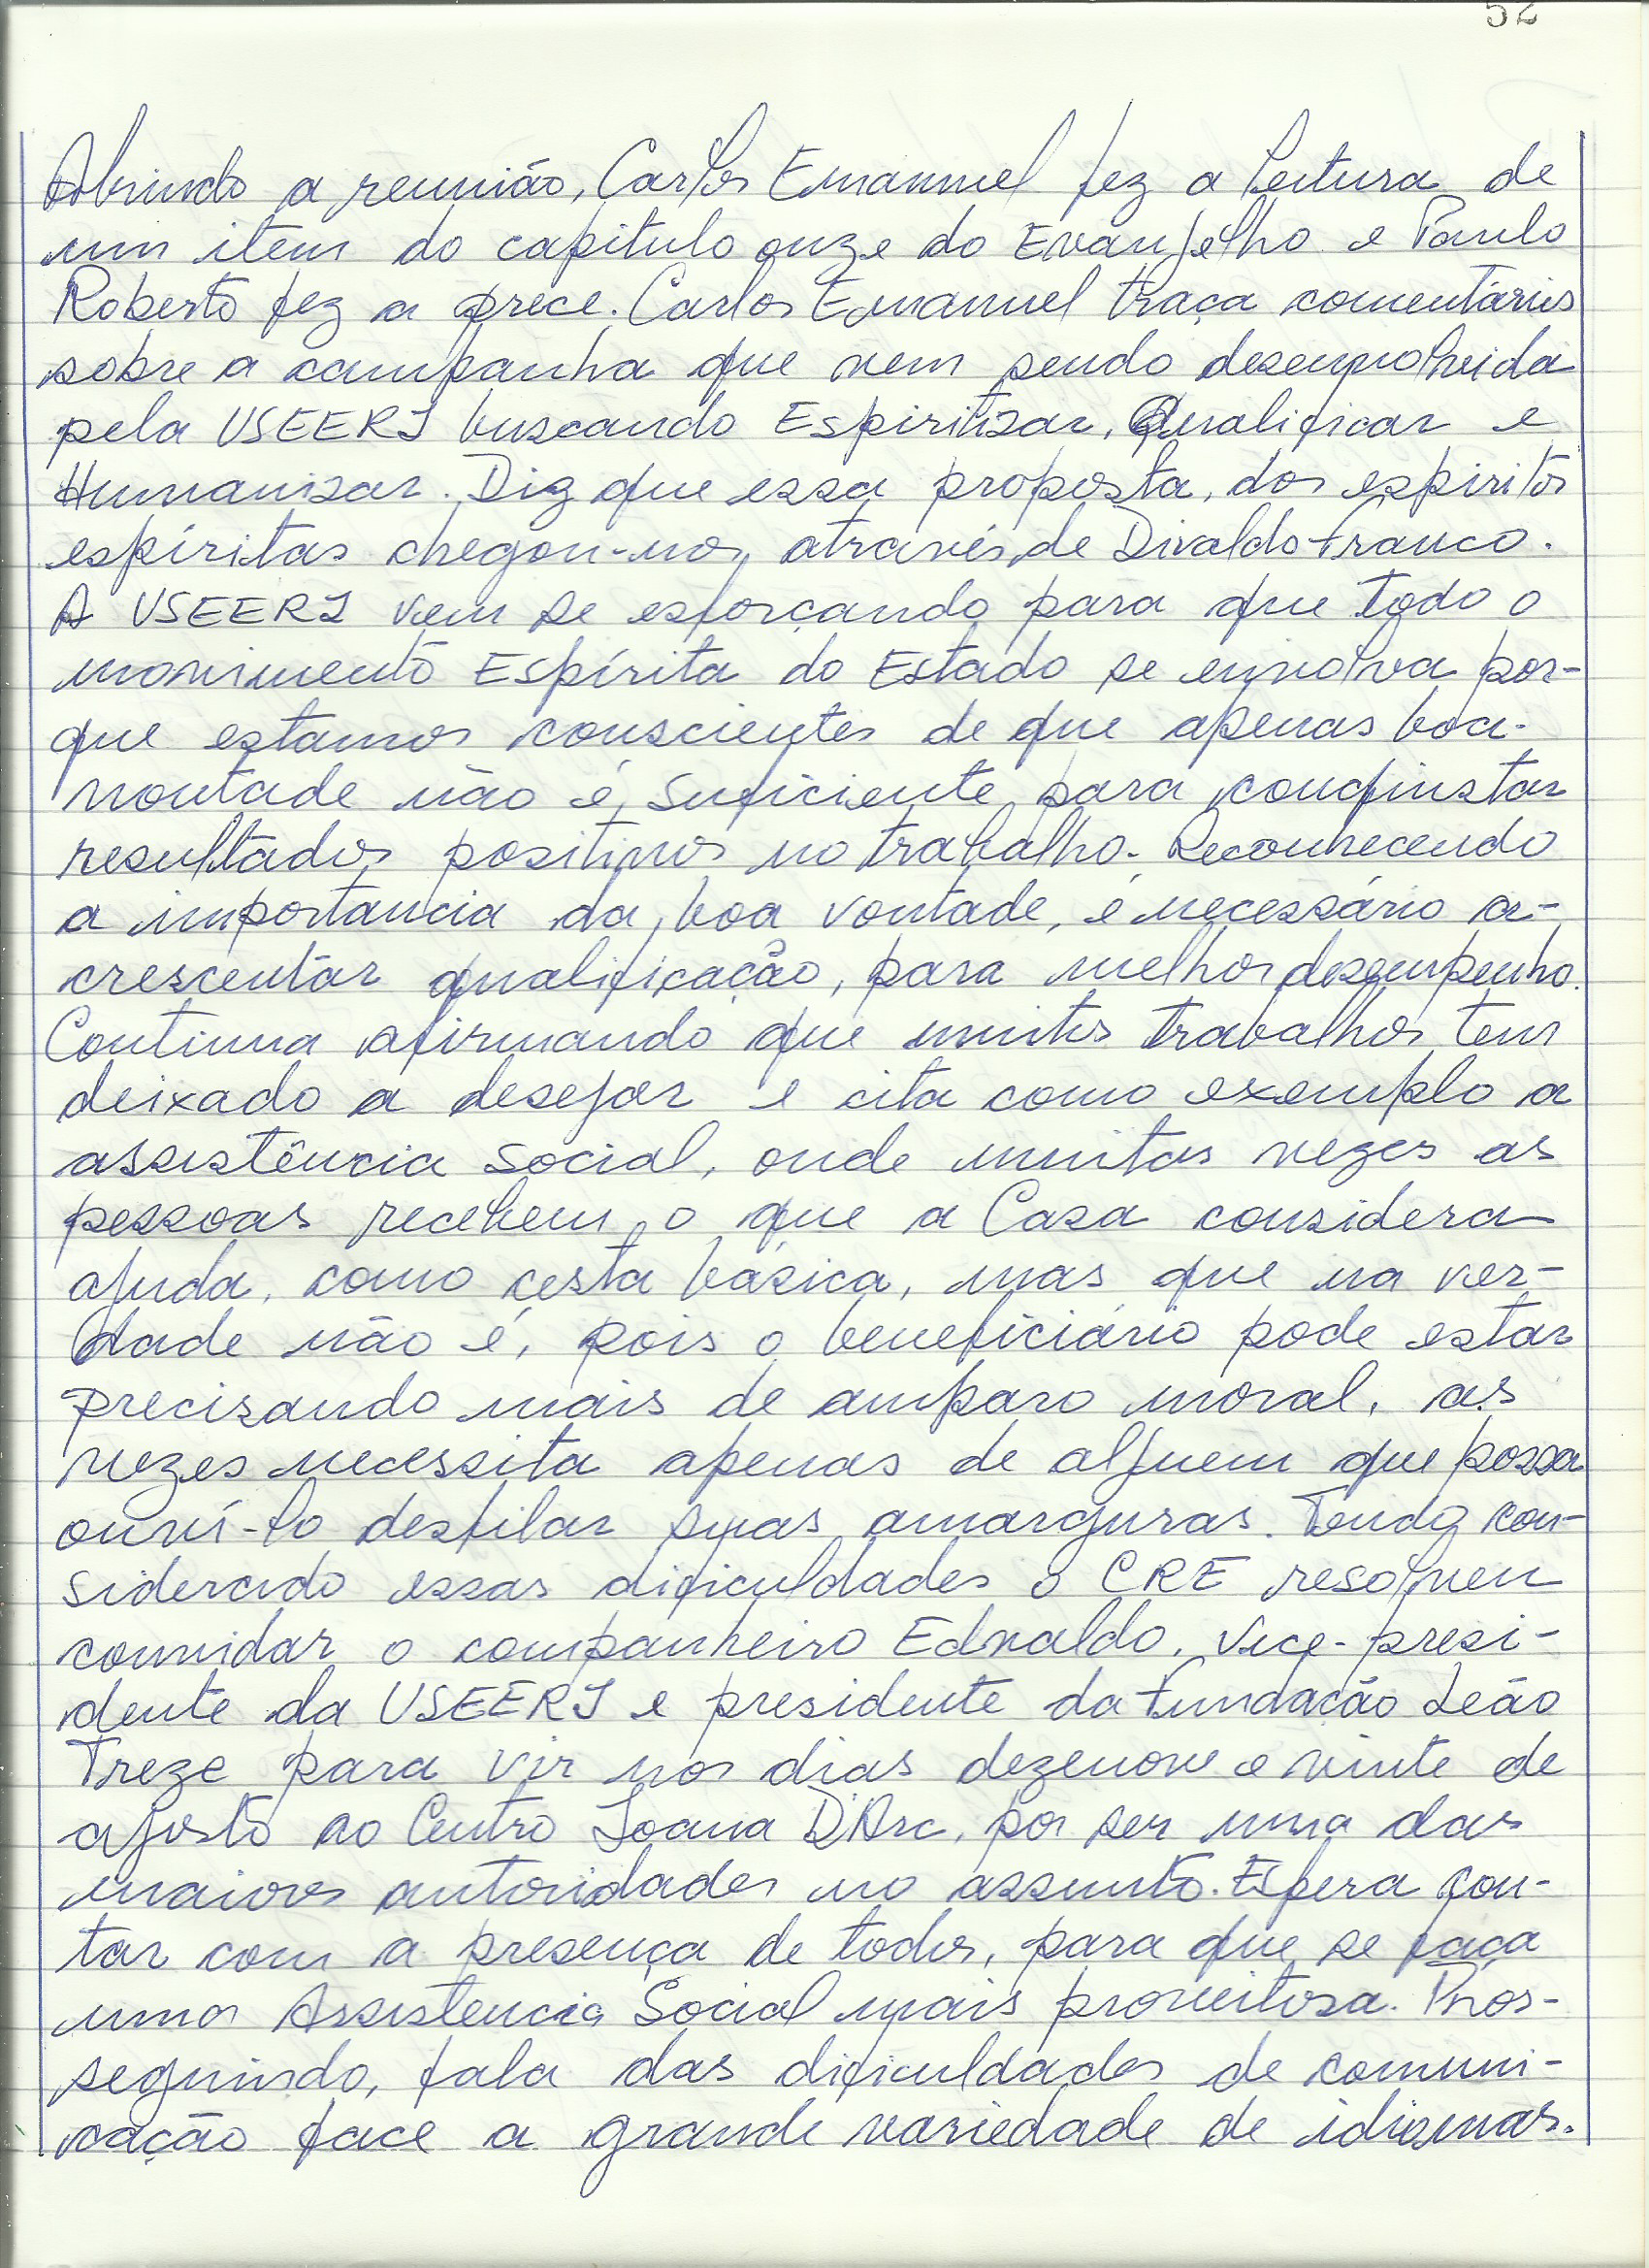 52
Abrindo a reunião, Carlos Emannuel fez a leitura de
um item do capítulo onze do Evangelho e Paulo
Roberto fez a prece. Carlos Emanuel traça comentários
sobre a campanha que vem sendo desenvolvida
pela USEERJ buscando Espiritizar, Qualificar e
Humanizar. Diz que essa proposta, dos espiritos
espíritas chegou-nos através de Divaldo Franco.
A USEERJ vem se esforçando para que todo o
movimento Espírita do Estado se envolva por-
que estamos conscientes de que apenas boa-
vontade não é suficiente para conquistar
resultados positivos no trabalho. Reconhecendo
a importancia da boa vontade, é necessário a-
crescentar qualificação, para melhor desempenho.
Continua afirmando que muitos trabalhos tem
deixado a desejar e cita como exemplo a
assistência social, onde muitas vezes as
pessoas recebem o que a Casa considera
ajuda, como cesta básica, mas que na ver-
dade não é, pois o beneficiário pode estar
precisando mais de amparo moral, as
vezes necessita apenas de alguem que possa
ouví-lo desfilar suas amarguras. Tendo con-
siderado essas dificuldades o CRE resolveu
convidar o companheiro Ednaldo, vice-presi-
dente da USEERJ e presidente da Fundação Leão
Treze para vir nos dias dezenove e vinte de
agosto ao Centro Joana D'Arc, por ser uma das
maiores autoridades no assunto. Espera con-
tar com a presença de todos, para que se faça
uma Assistencia Social mais proveitosa. Pros-
seguindo, fala das dificuldades de comuni-
cação face a grande variedade de idiomas.